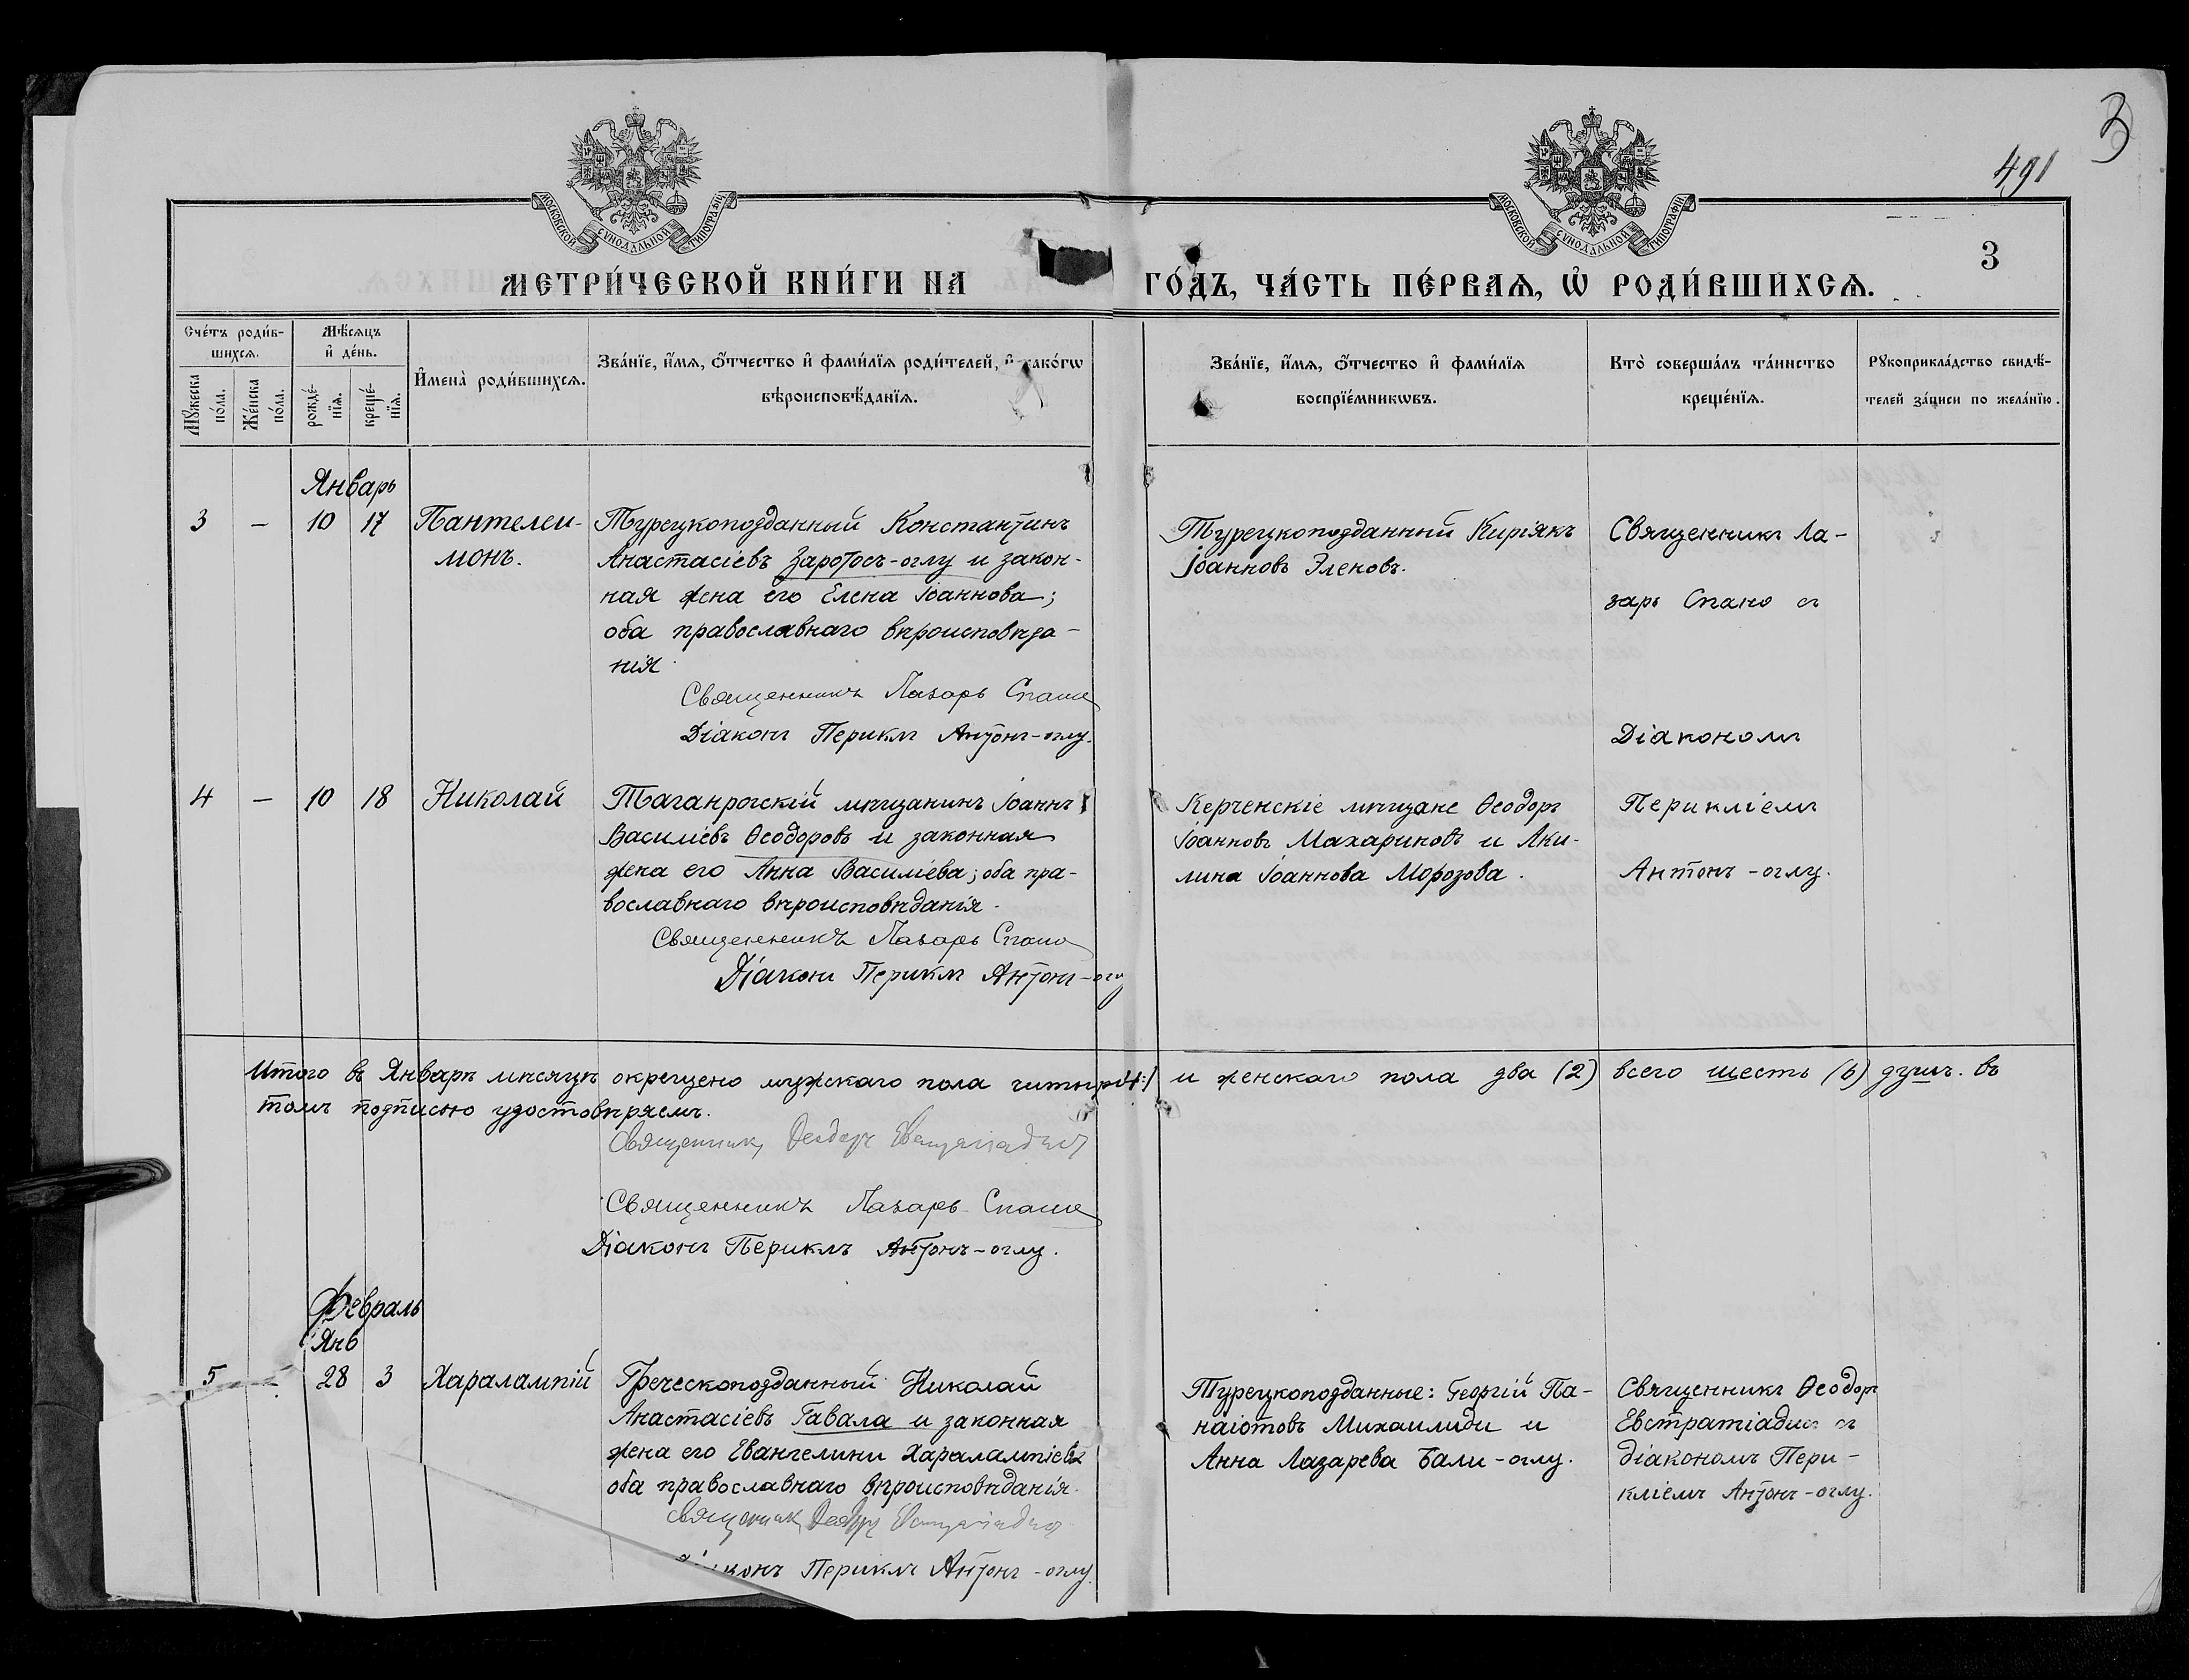 3
491
МОСКОВСКОЙ СѴНОДАЛЬНОЙ ТИПОГРАФІИ
МОСКОВСКОЙ СѴНОДАЛЬНОЙ ТИПОГРАФІИ
3
МЕТРИ́ЧЕСКОЙ КНИ́ГИ НА ГО́ДЪ, ЧА́СТЬ ПЕ́РВАѦ, Ѡ҆ РОДИ́ВШИХСѦ.
Сче́тъ роди́в-
шихсѧ.
Мѣ́сѧцъ
и҆ де́нь.
Мꙋ́жеска
по́ла.
Же́нска
по́ла.
рожде́-
нїѧ.
креще́-
нїѧ.
И҆мена̀ роди́вшихсѧ.
Зва́нїе, и҆́мѧ, о҆́тчество и҆ фами́лїѧ роди́телей, и҆ како́гѡ
вѣроисповѣ́данїѧ.
Зва́нїе, и҆́мѧ, о҆́тчество и҆ фами́лїѧ
воспрїе́мникѡвъ.
Кто̀ соверша́лъ та́инство
креще́нїѧ.
Рꙋкоприкла́дство свидѣ́-
телей за́писи по жела́нїю.
Январь
3 — 10 17 Пантелеи-
монъ.
Турецкоподданный Константинъ
Анастасіевъ Заротосъ-оглу и закон-
ная жена его Елена Іоаннова;
оба православнаго вѣроисповѣда-
нія
Священникъ Лазарь Спано
Діаконъ Периклъ Антонъ-оглу.
Турецкоподданный Киріякъ
Іоанновъ Эленовъ.
Священникъ Ла-
зарь Спано съ
Діакономъ
Перикліемъ
Антонъ-оглу.
4 — 10 18 Николай
Таганрогскій мѣщанинъ Іоаннъ
Василіевъ Ѳеодоровъ и законная
жена его Анна Василіева; оба пра-
вославнаго вѣроисповѣданія.
Священникъ Лазарь Спано
Діаконъ Периклъ Антонъ-оглу
Керченскіе мѣщане Ѳеодоръ
Іоанновъ Махариновъ и Аки-
лина Іоаннова Морозова.
Итого въ Январѣ мѣсяцѣ окрещено мужскаго пола четыре (4) и женскаго пола два (2) всего шесть (6) душъ. въ
томъ подписью удостовѣряемъ.
Священникъ Ѳеодоръ Евстратіадисъ
Священникъ Лазарь Спано
Діаконъ Периклъ Антонъ-оглу.
Февраль
Янв
5 — 28 3 Харалампій
Греческоподданный Николай
Анастасіевъ Гавала и законная
жена его Евангелини Харалампіева
оба православнаго вѣроисповѣданія.
Священникъ Ѳеодоръ Евстратіадисъ
Діаконъ Периклъ Антонъ-оглу.
Турецкоподданные: Георгій Па-
наіотовъ Михаилиди и
Анна Лазарева Бали-оглу.
Священникъ Ѳеодоръ
Евстратіадисъ съ
діакономъ Пери-
кліемъ Антонъ-оглу.